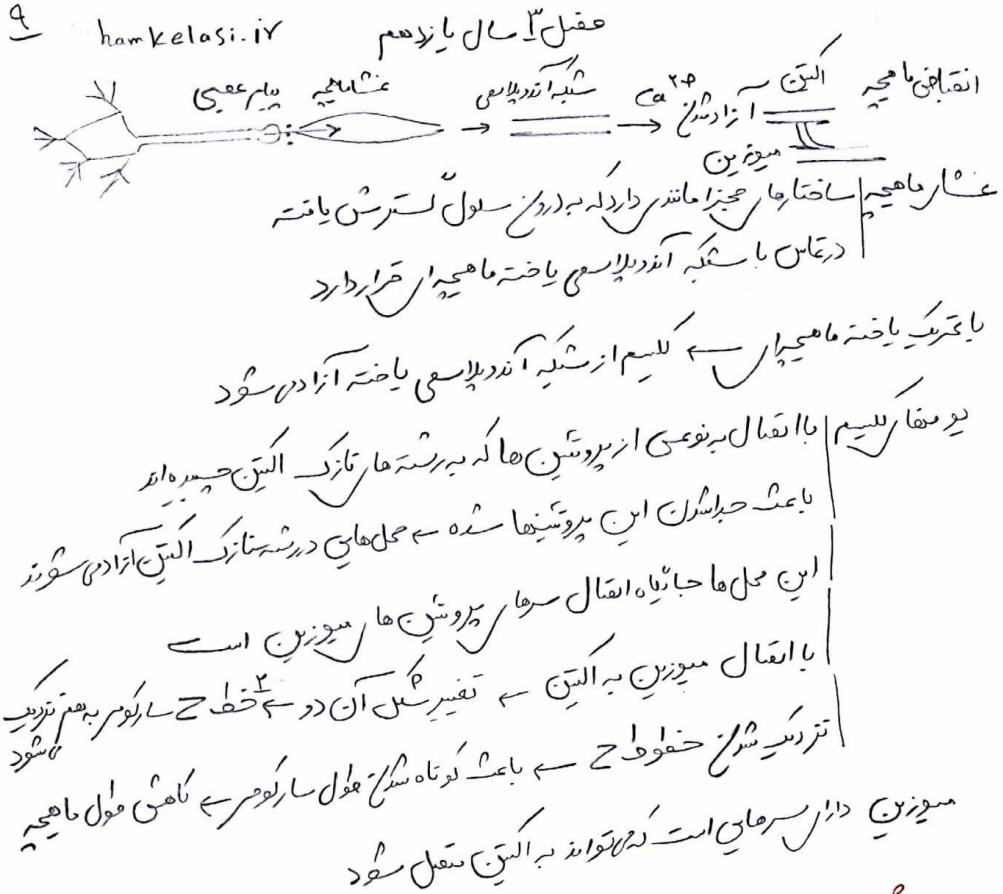 ۹ hamkelasi.ir فصل ۳ سال یازدهم
پیام عصبی غشا ماهیچه شبکه آندوپلاسمی آزاد شدن Ca²⁺ اکتین انقباض ماهیچه
میوزین
غشای ماهیچه ساختارهای مجزا مانندی دارد که به درون سلول گسترش یافته
در تماس با شبکه آندوپلاسمی یاخته ماهیچه‌ای قرار دارد
با تحریک یاخته ماهیچه‌ای ← کلسیم از شبکه آندوپلاسمی یاخته آزاد می‌شود
یون‌های کلسیم با اتصال به نوعی از پروتئین‌ها که به رشته‌های نازک اکتین چسبیده‌اند
باعث جدا شدن این پروتئینها شده ← محل‌هایی در رشته نازک اکتین آزاد می‌شوند
این محل‌ها جایگاه اتصال سرهای پروتئین‌های میوزین است
با اتصال میوزین به اکتین ← تغییر شکل آن دو ← ۲ خط Z سارکومر به هم نزدیک می‌شود
نزدیک شدن خطوط Z ← باعث کوتاه شدن طول سارکومر ← کاهش طول ماهیچه
میوزین دارای سرهایی است که می‌تواند به اکتین متصل شود